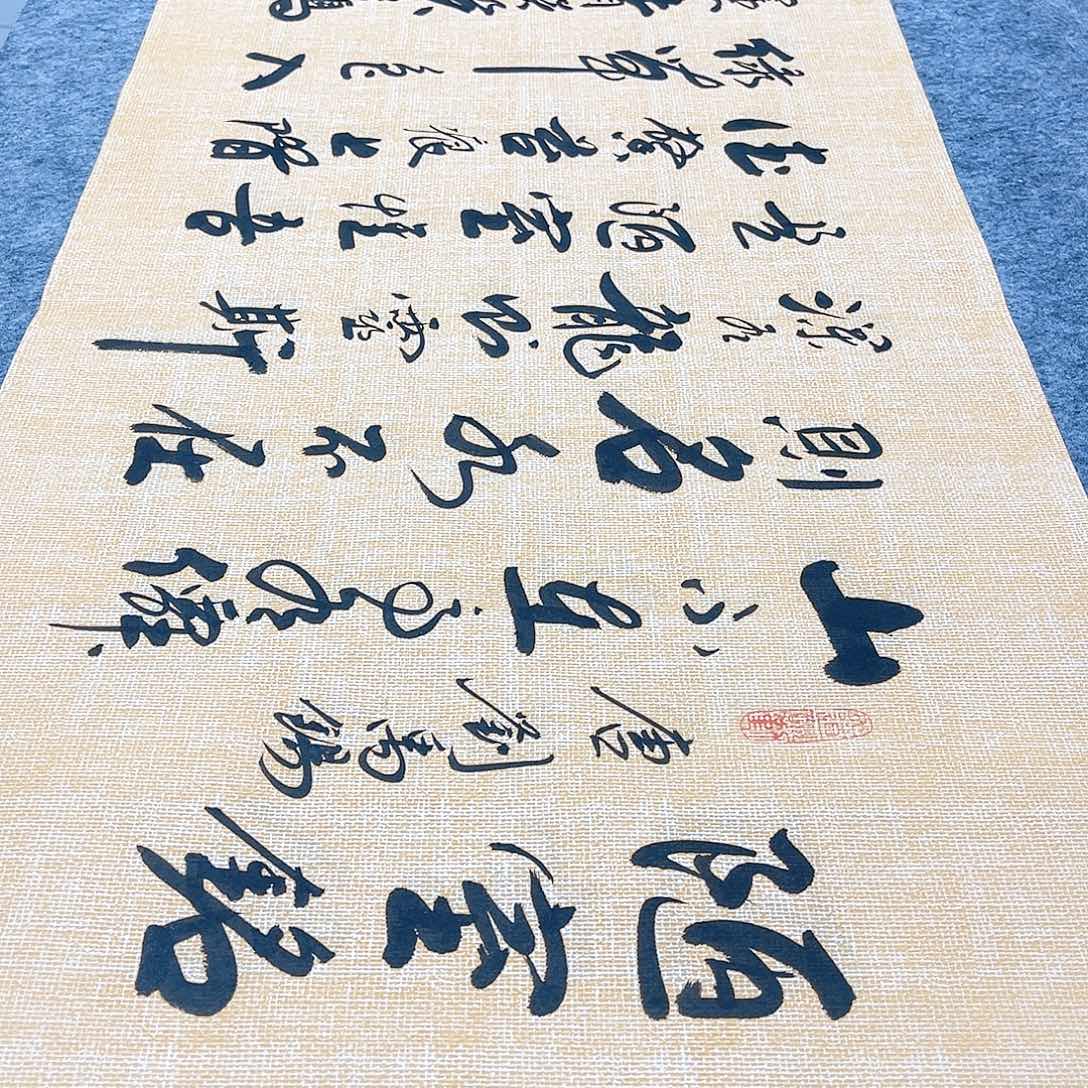 陋室銘
唐劉禹錫
山不在高有僊
則名水不在
深有龍則靈斯
是陋室惟吾
德馨苔痕上階
綠草色入
青